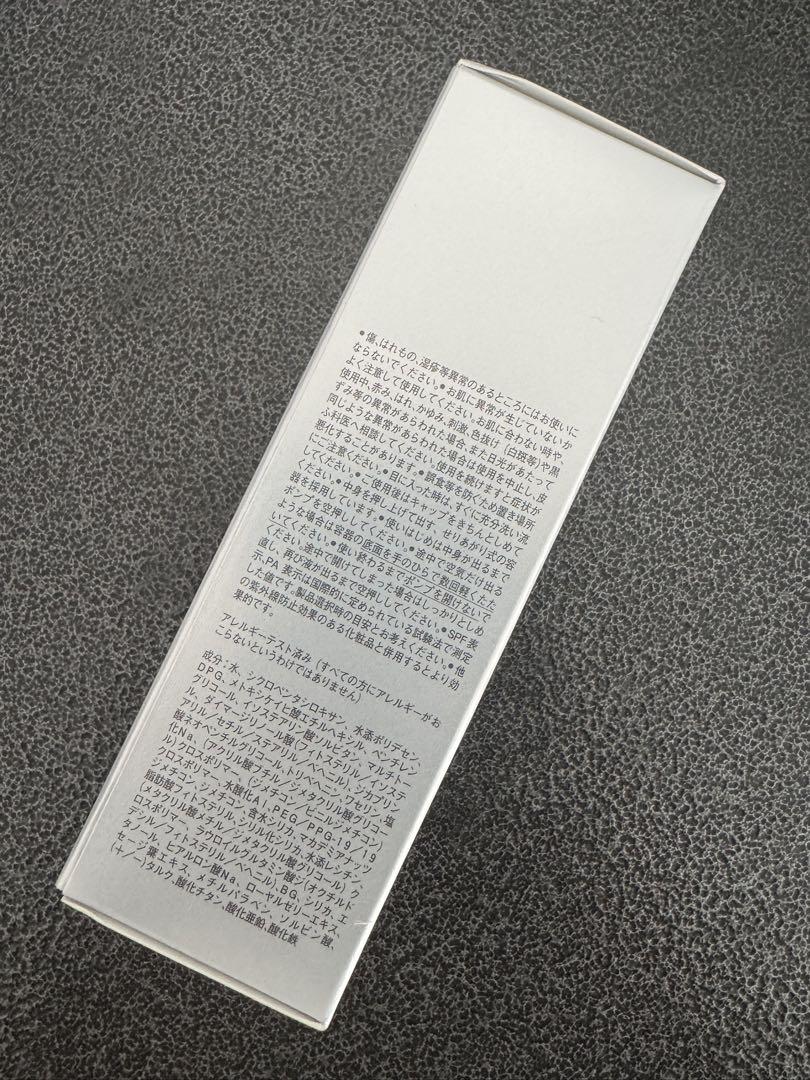 ●傷、はれもの、湿疹等異常のあるところにはお使いに
ならないでください。●お肌に異常が生じていないか
よく注意して使用してください。お肌に合わない時や、
使用中、赤み、はれ、かゆみ、刺激、色抜け（白斑等）や黒
ずみ等の異常があらわれた場合、また日光があたって
同じような異常があらわれた場合は使用を中止し、皮
ふ科医へ相談してください。使用を続けますと症状が
悪化することがあります。●誤食等を防ぐため置き場所
にご注意ください。●目に入った時は、すぐに充分洗い流
してください。●ご使用後はキャップをきちんとしめて
ください。●中身を押し上げて出す、せりあがり式の容
器を採用しています。●使いはじめは中身が出るまで
ポンプを空押ししてください。●途中で空気だけ出る
ような場合は容器の底面を手のひらで数回軽くたた
いてください。●使い終わるまでポンプを開けないで
ください。途中で開けてしまった場合はしっかりとしめ
直し、再び液が出るまで空押ししてください。●SPF表
示、PA 表示は国際的に定められている試験法で測定
した値です。製品選択時の目安とお考えください。●他
の紫外線防止効果のある化粧品と併用するとより効
果的です。
アレルギーテスト済み（すべての方にアレルギーがお
こらないというわけではありません）
成分：水、シクロペンタシロキサン、水添ポリデセン、
DPG、メトキシケイヒ酸エチルヘキシル、ペンチレン
グリコール、イソステアリン酸ソルビタン、マルチトー
ル、ダイマージリノール酸（フィトステリル／イソステ
アリル／セチル／ステアリル／ベヘニル）、ジカプリン
酸ネオペンチルグリコール、トリベヘニン、ワセリン、塩
化Na、（アクリル酸ブチル／ジメタクリル酸グリコー
ル）クロスポリマー、（ジメチコン／ビニルジメチコン）
クロスポリマー、水酸化Al、PEG／PPG-19／19
ジメチコン、ジメチコン、含水シリカ、マカデミアナッツ
脂肪酸フィトステリル、シリル化シリカ、水添レシチン、
（メタクリル酸メチル／ジメタクリル酸グリコール）ク
ロスポリマー、ラウロイルグルタミン酸ジ（オクチルド
デシル／フィトステリル／ベヘニル）、BG、シリカ、エ
タノール、ヒアルロン酸Na、ローヤルゼリーエキス、
セージ葉エキス、メチルパラベン、ソルビン酸、
（＋／－）タルク、酸化チタン、酸化亜鉛、酸化鉄